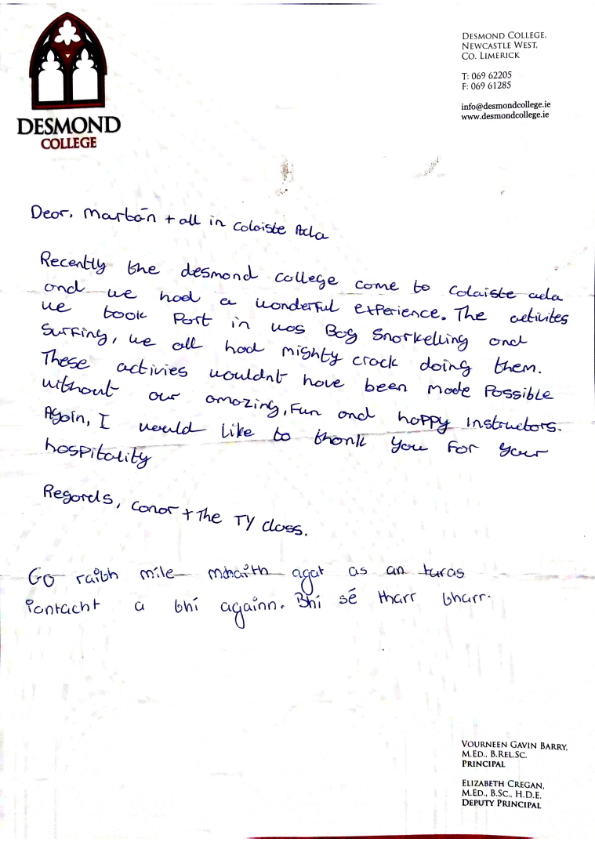 DESMOND
COLLEGE
DESMOND COLLEGE,
NEWCASTLE WEST,
CO. LIMERICK
T: 069 62205
F: 069 61285
info@desmondcollege.ie
www.desmondcollege.ie
Dear, Martán + all in Colaiste Acla
Recently the desmond college come to Colaiste acla
and we had a wonderful experience. The activites
we took Part in was Bog Snorkelling and
Surfing, we all had mighty crack doing them.
These activies wouldnt have been made Possible
without our amazing, Fun and happy instructors.
Again, I would like to thank you for your
hospitality
Regards, Conor + The TY class.
Go raibh míle mhaith agat as an turas
iontacht a bhí againn. Bhí sé tharr bharr.
VOURNEEN GAVIN BARRY,
M.ED., B.REL.SC.
PRINCIPAL
ELIZABETH CREGAN,
M.ED., B.SC., H.D.E.
DEPUTY PRINCIPAL